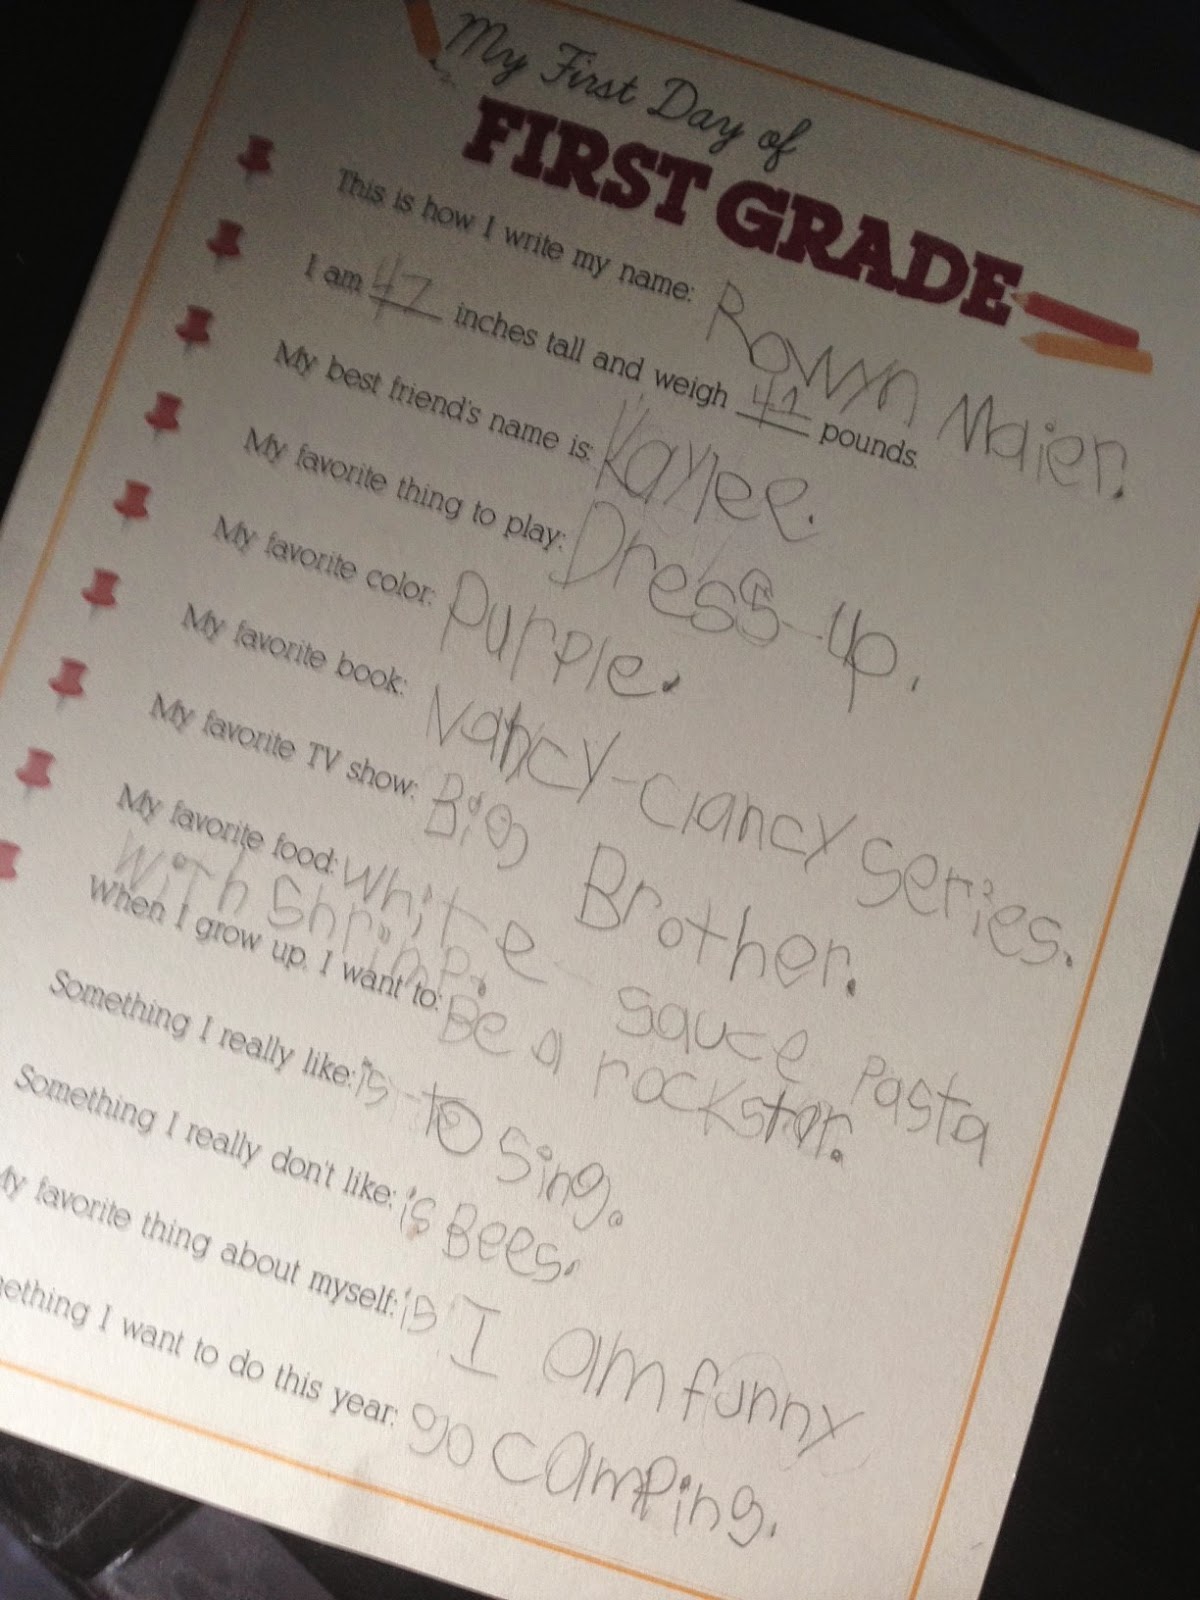 My First Day of
FIRST GRADE
This is how I write my name: Rowyn Maier.
I am 47 inches tall and weigh 41 pounds.
My best friend's name is: Kaylee.
My favorite thing to play: Dress-up.
My favorite color: Purple.
My favorite book: Nancy-clancy series.
My favorite TV show: Big Brother.
My favorite food: White-sauce pasta
with Shrimp.
When I grow up, I want to: Be a rockstar.
Something I really like: is to sing.
Something I really don't like: is Bees.
My favorite thing about myself: is I am funny
ething I want to do this year: go camping.